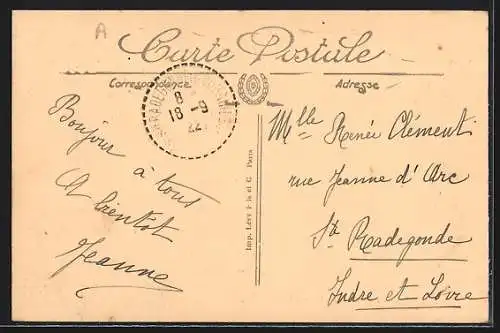 A
Carte Postale
Correspondance
Adresse
8
18 -9
22
Bonjour
à tous
A bientot
Jeanne
Imp. Lévy Fils et C Paris
Mlle Renée Clément
rue Jeanne d'Arc
Ste Radegonde
Indre et Loire